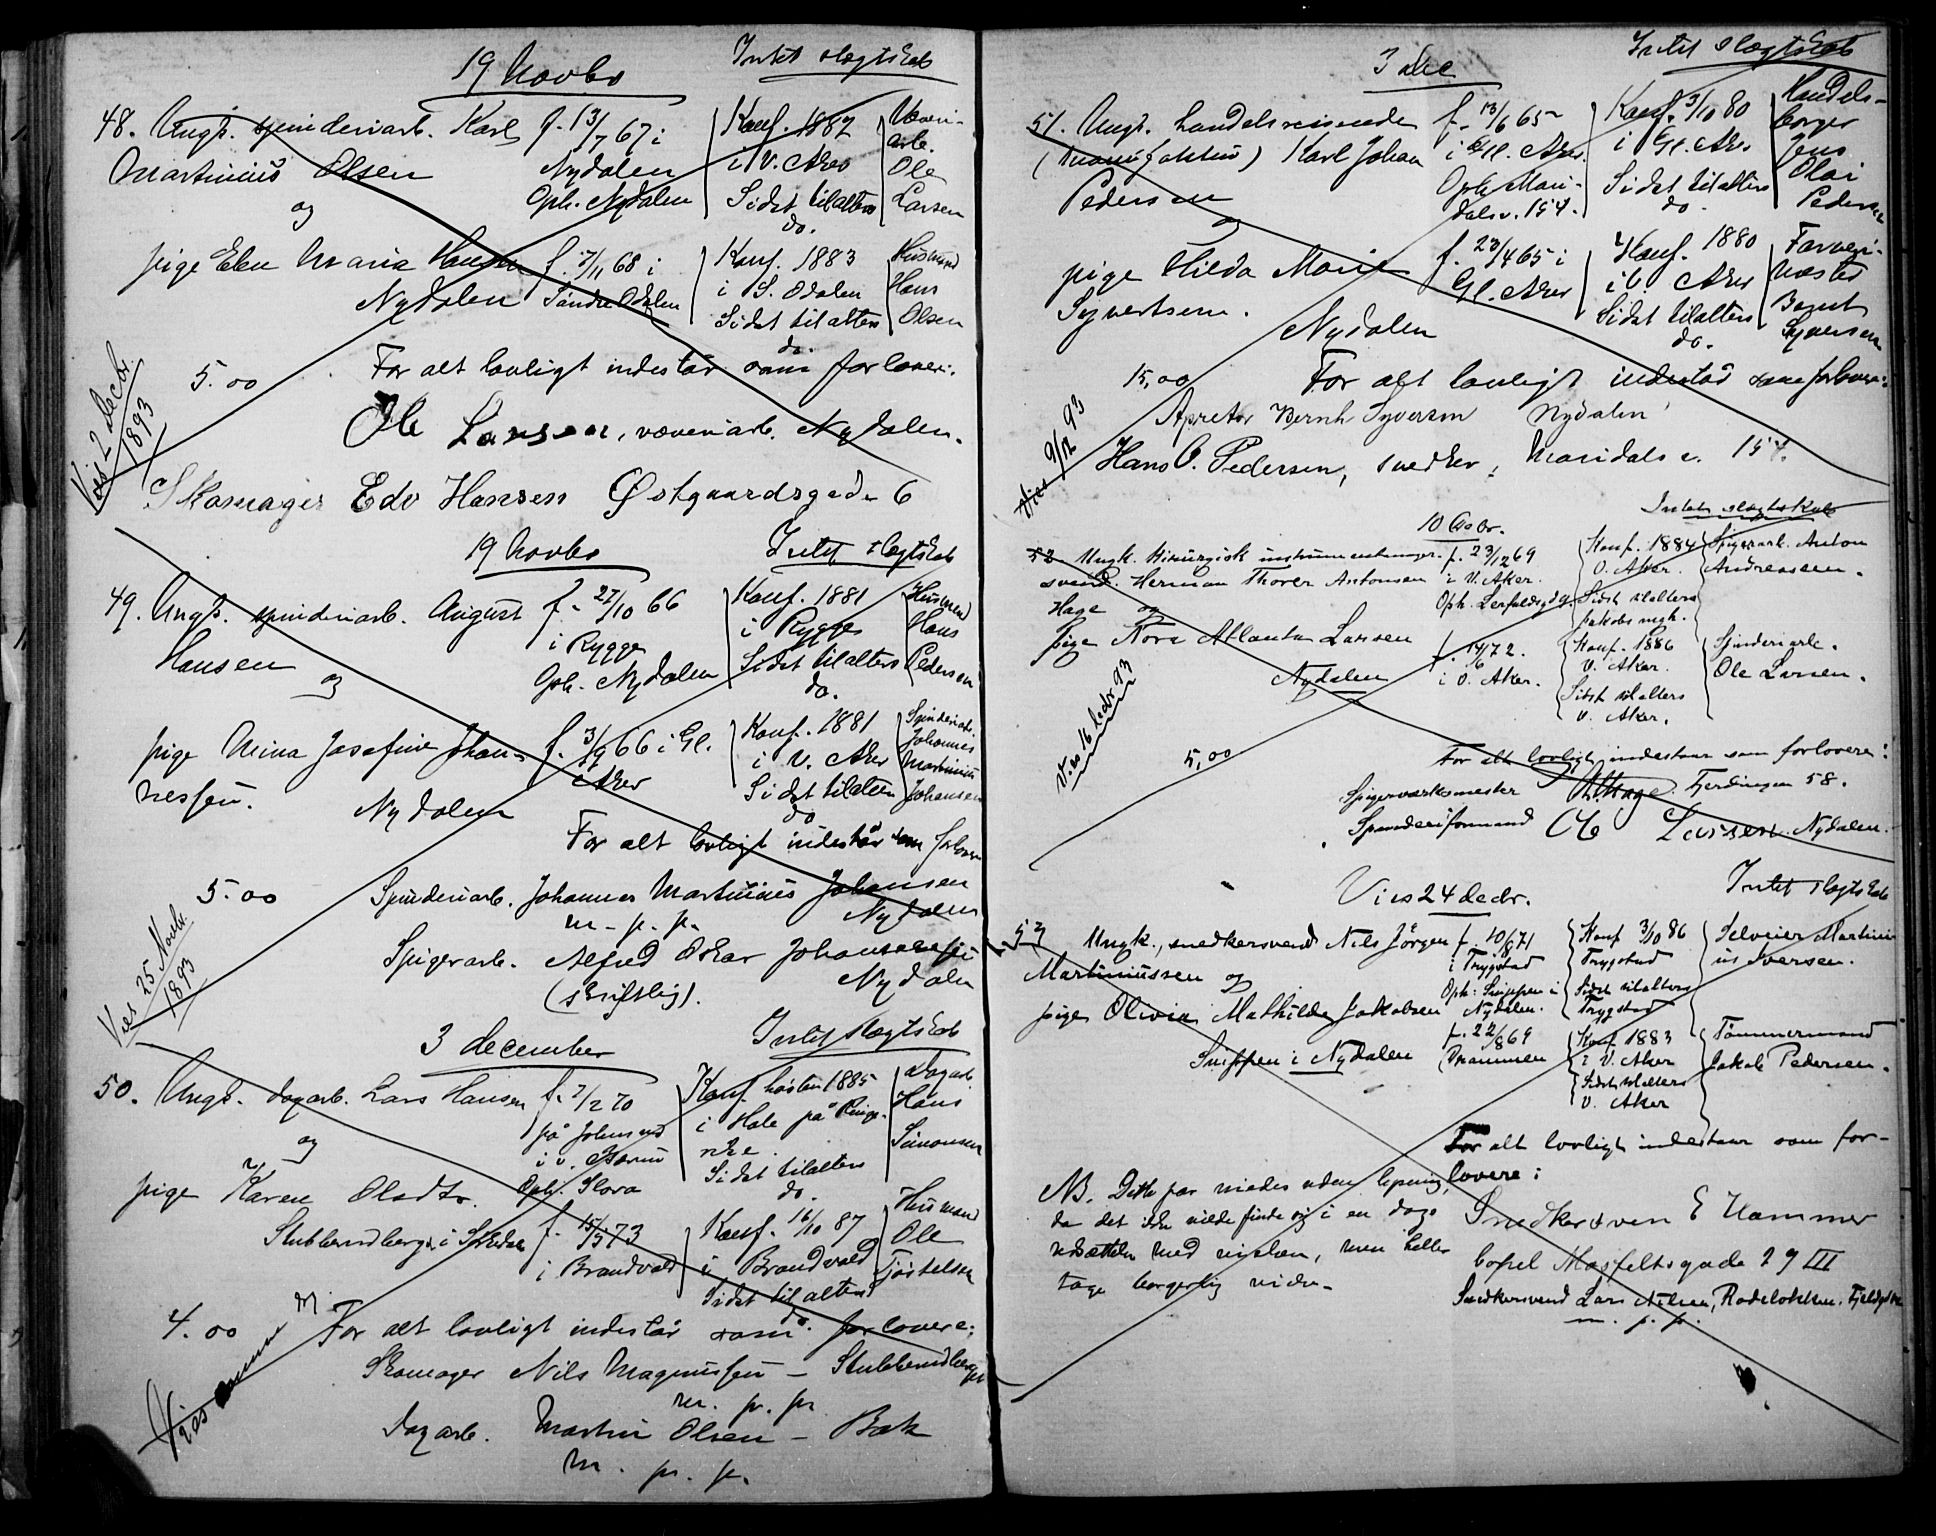 19 Novbr
Intet slægtskab
48. Ungk. spinderiarb. Karl
Martinius Olsen
og
f. 13/7 67 i
Nydalen
Oph. Nydalen
Konf. 1882
i V. Aker
Sidst til alters
do.
Væveri-
arb.
Ole
Larsen
pige Elen Maria Hansen
Nydalen
f. 7/11 68 i
Søndre Odalen
Konf. 1883
i S. Odalen
Sidst til alters
do.
Husmand
Hans
Olsen
5.00
For alt lovligt indestår som forlovere:
Ole Larsen, væveriarb. Nydalen.
Skomager Edv Hansen Østgaardsgade 6
Vies 2 Decbr.
1893
19 Novbr
Intet slægtskab
49. Ungk. spinderiarb. August
Hansen
og
f. 27/10 66
i Rygge
Oph. Nydalen
Konf. 1881
i Rygge
Sidst til alters
do.
Husmand
Hans
Pedersen
pige Mina Josefine Johan-
nessen.
Nydalen
f. 3/9 66 i Gl.
Aker
Konf. 1881
i V. Aker
Sidst til alters
do
Spinderiarb.
Johannes
Martinius
Johansen
For alt lovligt indestår som forlovere
5.00
Spinderiarb. Johannes Martinius Johansen
Nydalen
m. p. p.
Spigerarb. Alfred Oskar Johannessen
Nydalen
(skriftlig).
Vies 25 Novbr.
1893
3 december
Intet slægtskab
50. Ungk. dagarb. Lars Hansen
og
f. 7/2 70
på Johnsrud
i v. Bærum
Oph. Slora
Konf. høsten 1885
i Hole på Ringe-
rike.
Sidst til alters
do.
Dagarb.
Hans
Simonsen
pige Karen Olsdtr.
Stubberudberget i
f. 15/5 73
i Brandvold
Konf. 16/10 87
i Brandvold
Sidst til alters
do.
Husmand
Ole
4.00
For alt lovligt indestår som forlovere:
Skomager Nils Magnussen – Stubberudberget
m. p. p.
Dagarb. Martin Olsen – Bak
m. p. p.
Vies
3 dec
Intet slægtskab
51. Ungk. handelsreisende
(manufaktur) Karl Johan
Pedersen
og
f. 13/6 65
i Gl. Aker.
Oph. Mari-
dalsv. 154.
Konf. 3/10 80
i Gl. Aker
Sidst til alters
do.
Handels-
borger
Jens
Olai
Pedersen
pige Hilda Marie
Syvertsen.
Nydalen
f. 23/4 65 i
Gl. Aker
Konf. 1880
i V. Aker
Sidst til alters
do.
Farveri-
mester
Bernt
Syversen
15,00
For alt lovligt indestår som forlovere:
Apretør Bernh Syversen Nydalen
Hans O. Pedersen, snedker, Maridalsv. 154.
Vies 9/12 93
10 Decbr.
Intet slægtskab
52 Ungk. kirurgisk instrumentmager-
svend. Herman Thorer Antonsen
Hage og
f. 23/12 69
i V. Aker.
Konf. 1884
V. Aker.
Sidst til alters
Jakobs mgh.
Spigerarb. Anton
Andreassen.
pige Nora Atlanta Larsen
Nydalen
f. 14/6 72.
i V. Aker.
Konf. 1886
V. Aker.
Sidst til alters
V. Aker.
Spinderiarb.
Ole Larsen.
Vies 16 decbr 93
5,00
For alt lovligt indestaar som forlovere:
Spigerværksmester A. Hage. Fjerdingen 58.
Spinderiformand Ole Larsen. Nydalen.
Vies 24 decbr.
Intet slægtskab
53 Ungk., snedkersvend Nils Jörgen
Martiniussen og
f. 10/8 71
i Trygstad
Oph: Snippen i
Nydalen.
Konf 3/10 86
Trygstad
Sidst til alters
Trygstad
Selveier Martini-
us Iversen.
pige Olivia Mathilde Jakobsen
Snippen i Nydalen
f. 22/8 69
Drammen
Konf. 1883
i V. Aker
Sidst til alters
V. Aker
Tømmermand
Jakob Pedersen.
For alt lovligt indestaar som for-
lovere:
NB. Dette par viedes uden lysning,
da det ikke vilde finde sig i en dags
udsættelse med vielsen, men heller
tage borgerlig vielse.
Snedkersven E Hammer
bopel Mosfeltsgade 19 III
Snedkersvend Lars Nilsen, Rodeløkken.
m. p. p.